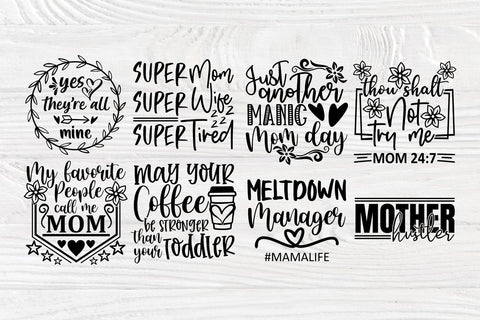 yes
they're all
mine
SUPER Mom
SUPER Wife
zzz
SUPER Tired
Just
another
MANIC
Mom day
thou shalt
Not
try me
MOM 24:7
My favorite
People
call me
MOM
MAY YOUR
Coffee
be STRONGER
than
your TODDLER
MELTDOWN
Manager
#MAMALIFE
MOTHER
hustler